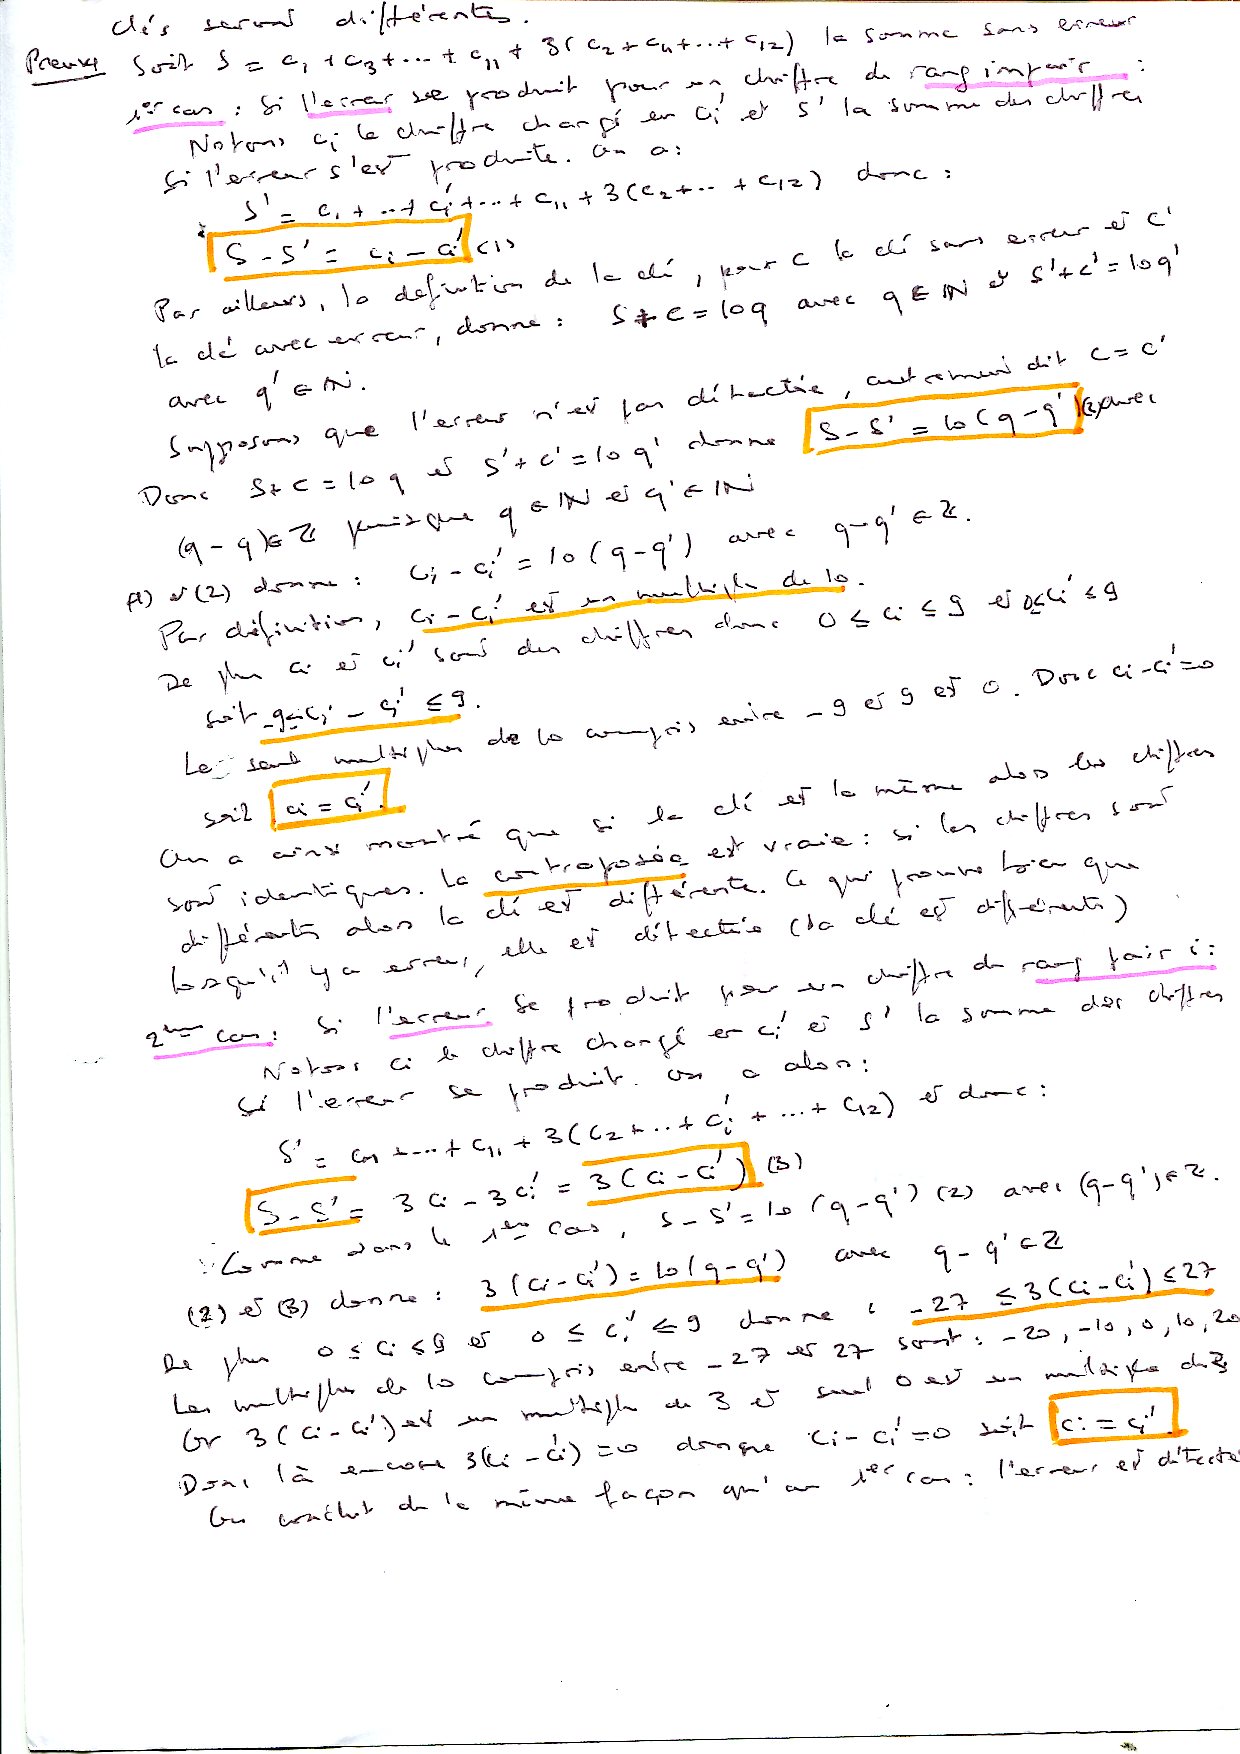 clés seront différentes.
Preuve Soit S = c₁ + c₃ + ... + c₁₁ + 3(c₂ + c₄ + ... + c₁₂) la somme sans erreur
1er cas : Si l'erreur se produit pour un chiffre de rang impair :
Notons ci le chiffre changé en ci' et S' la somme des chiffres
si l'erreur s'est produite. On a :
S' = c₁ + ... + ci' + ... + c₁₁ + 3(c₂ + ... + c₁₂) donc :
S - S' = ci - ci' (1)
Par ailleurs, la définition de la clé, pour C la clé sans erreur et C'
la clé avec erreur, donne : S + C = 10q avec q ∈ ℕ et S' + C' = 10q'
avec q' ∈ ℕ.
Supposons que l'erreur n'est pas détectée, autrement dit C = C'
Donc S + C = 10q et S' + C' = 10q' donne S - S' = 10(q - q') (2) avec
(q - q') ∈ ℤ puisque q ∈ ℕ et q' ∈ ℕ
(1) et (2) donne : ci - ci' = 10(q - q') avec q - q' ∈ ℤ.
Par définition, ci - ci' est un multiple de 10.
De plus ci et ci' sont des chiffres donc 0 ≤ ci ≤ 9 et 0 ≤ ci' ≤ 9
soit -9 ≤ ci - ci' ≤ 9.
Le seul multiple de 10 compris entre -9 et 9 est 0. Donc ci - ci' = 0
soit ci = ci'.
On a ainsi montré que si la clé est la même alors les chiffres
sont identiques. La contraposée est vraie : si les chiffres sont
différents alors la clé est différente. Ce qui prouve bien que
lorsqu'il y a erreur, elle est détectée (la clé est différente)
2ème cas : Si l'erreur se produit pour un chiffre de rang pair i :
Notons ci le chiffre changé en ci' et S' la somme des chiffres
si l'erreur se produit. On a alors :
S' = c₁ + ... + c₁₁ + 3(c₂ + ... + ci' + ... + c₁₂) et donc :
S - S' = 3ci - 3ci' = 3(ci - ci') (3)
Comme dans le 1er cas, S - S' = 10(q - q') (2) avec (q - q') ∈ ℤ.
(2) et (3) donne : 3(ci - ci') = 10(q - q') avec q - q' ∈ ℤ
De plus 0 ≤ ci ≤ 9 et 0 ≤ ci' ≤ 9 donne : -27 ≤ 3(ci - ci') ≤ 27
Les multiples de 10 compris entre -27 et 27 sont : -20, -10, 0, 10, 20
Or 3(ci - ci') est un multiple de 3 et seul 0 est un multiple de 3
Donc là encore 3(ci - ci') = 0 donc que ci - ci' = 0 soit ci = ci'.
On conclut de la même façon qu'au 1er cas : l'erreur est détectée